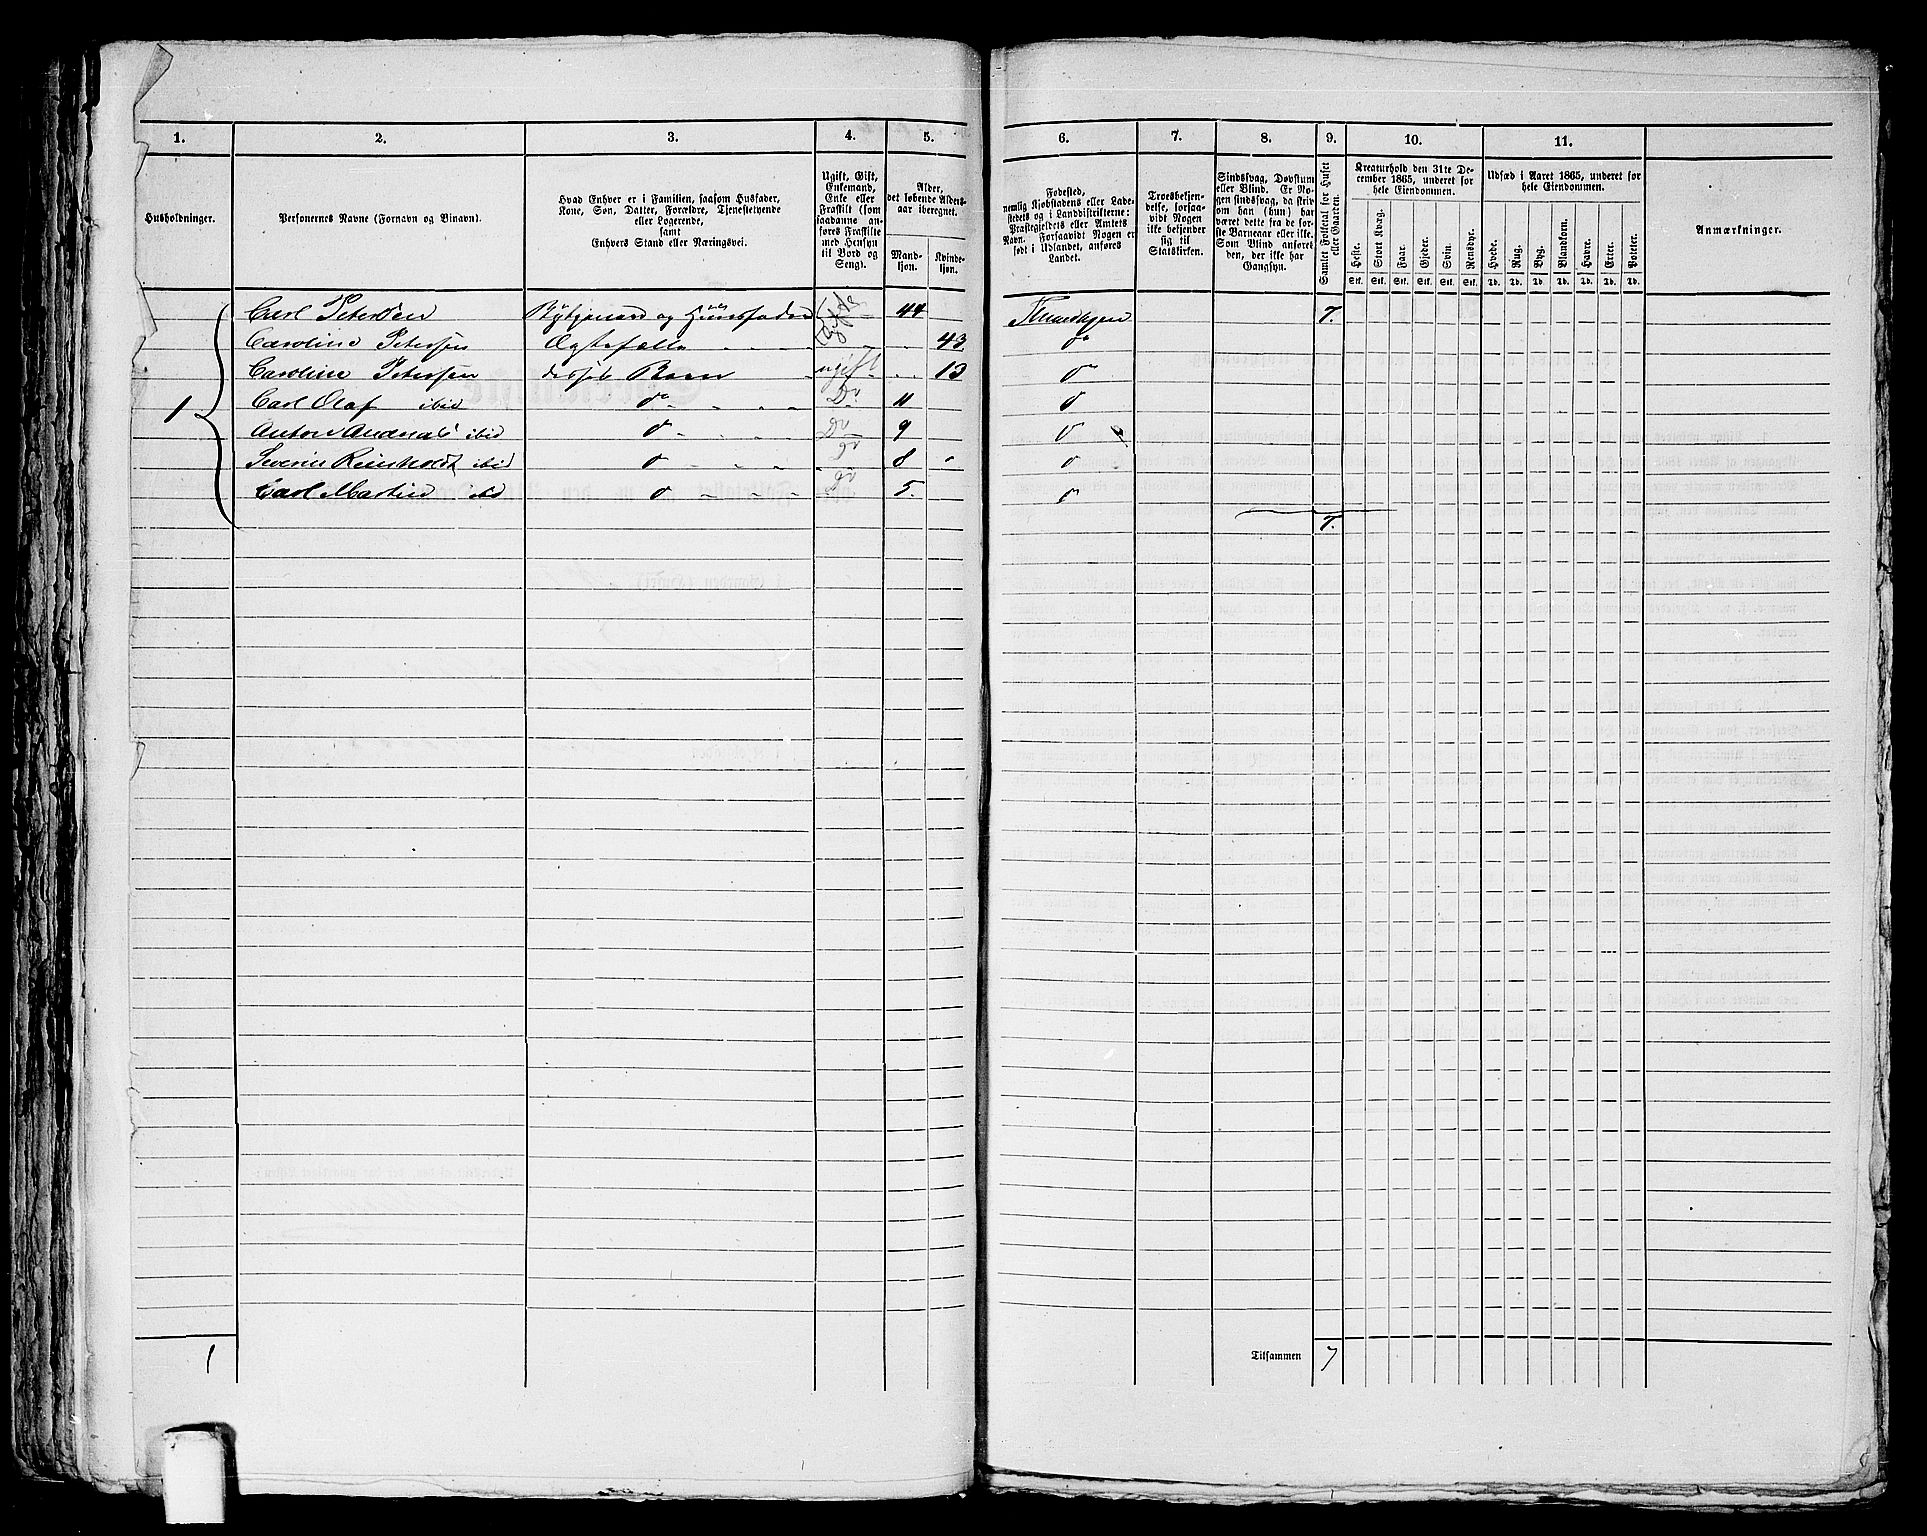 1. 2. 3. 4. 5. 6. 7. 8. 9. 10. 11.
Husholdninger.
Personernes Navne (Fornavn og Binavn).
Hvad Enhver er i Familien, saasom Husfader,
Kone, Søn, Datter, Forældre, Tjenestetyende
eller Logerende,
samt
Enhvers Stand eller Næringsvei.
Ugift, Gift,
Enkemand,
Enke eller
Fraskilt (som
saadanne an-
føres Fraskilte
med Hensyn
til Bord og
Seng).
Alder,
det løbende Alders-
aar iberegnet.
Mand-
kjøn.
Kvinde-
kjøn.
Fødested,
nemlig Kjøbstadens eller Lade-
stedets og i Landdistrikterne:
Præstegjeldets eller Amtets
Navn. Forsaavidt Nogen er
født i Udlandet, anføres
Landet.
Troesbekjen-
delse, forsaa-
vidt Nogen
ikke bekjender
sig til
Statskirken.
Sindssvag, Døvstum
eller Blind. Er No-
gen sindssvag, da skriv
om han (hun) har
været dette fra de før-
ste Barneaar eller ikke.
Som Blind anføres
den, der ikke har
Gangsyn.
Samlet Folketal for Huset
eller Gaarden.
Kreaturhold den 31te De-
cember 1865, underet for
hele Eiendommen.
Heste. Stort Kvæg. Faar. Gjeder. Svin. Rensdyr.
Stk. Stk. Stk. Stk. Stk. Stk.
Udsæd i Aaret 1865, underet for
hele Eiendommen.
Hvede. Rug. Byg. Blandkorn. Havre. Erter. Poteter.
Td. Td. Td. Td. Td. Td. Td.
Anmærkninger.
Carl Petersen og 44 7.
Caroline Petersen 43 do
Caroline Petersen Børn ugift 13 do
1 Carl Olaf ibid do Do 11 do
Anton ibid do Do 9 do
Severin Reinholdt ibid do do 8 do
Carl Martin ibid do do 5. do
7.
1 Tilsammen 7